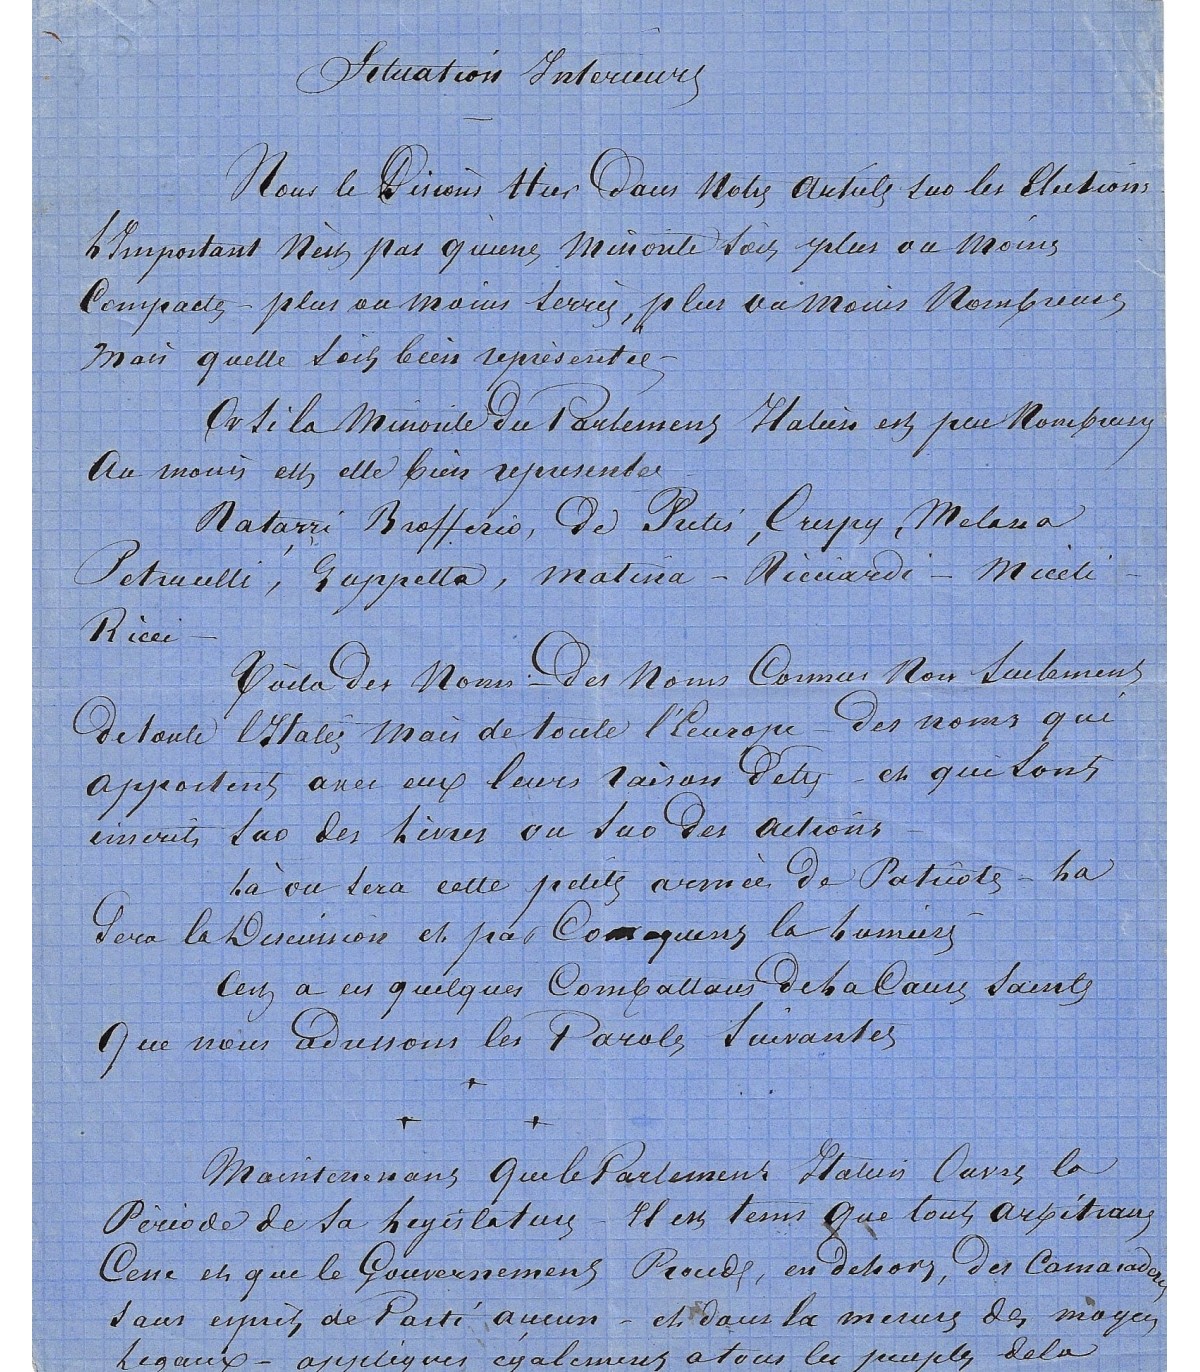 Situation Interieure
Nous le Disions Hier Dans Notre Article sur les Elections
L'Important N'est pas qu'une Minorité soit plus ou Moins
Compacte – plus ou moins serrée, plus ou Moins Nombreuse
Mais quelle soit bien représentée –
Or si la Minorité Du Parlement Italien est peu Nombreuse
Au moins est elle bien representée
Ratazzi Brofferio, De Pretis, Crispy, Melana
Petrucelli, Zuppetta, Matina – Ricciardi – Miceli –
Ricci –
Voila des Noms – Des Noms Connus Non Seulement
De toute l'Italie Mais de toute l'Europe – des noms qui
apportent avec eux leurs raison D'être – et qui sont
inscrits sur des Livres ou sur Des actions –
Là ou sera cette petite armée de Patriote – La
Sera la Discussion et par Consequent la Lumière
Cest a ces quelques Combattans De La Cause Sainte
Que nous adressons les Paroles Suivantes
+
+ +
Maintenenant Que le Parlement Italien Ouvre la
Période de Sa Legislature – Il est tems Que tout Arbitraire
Cesse et que le Gouvernement Procède, en dehors, des Camaraderies
sans esprit de Parti aucun – et dans la mesure des moyens
Legaux – appliquer également a tous les peuples de la